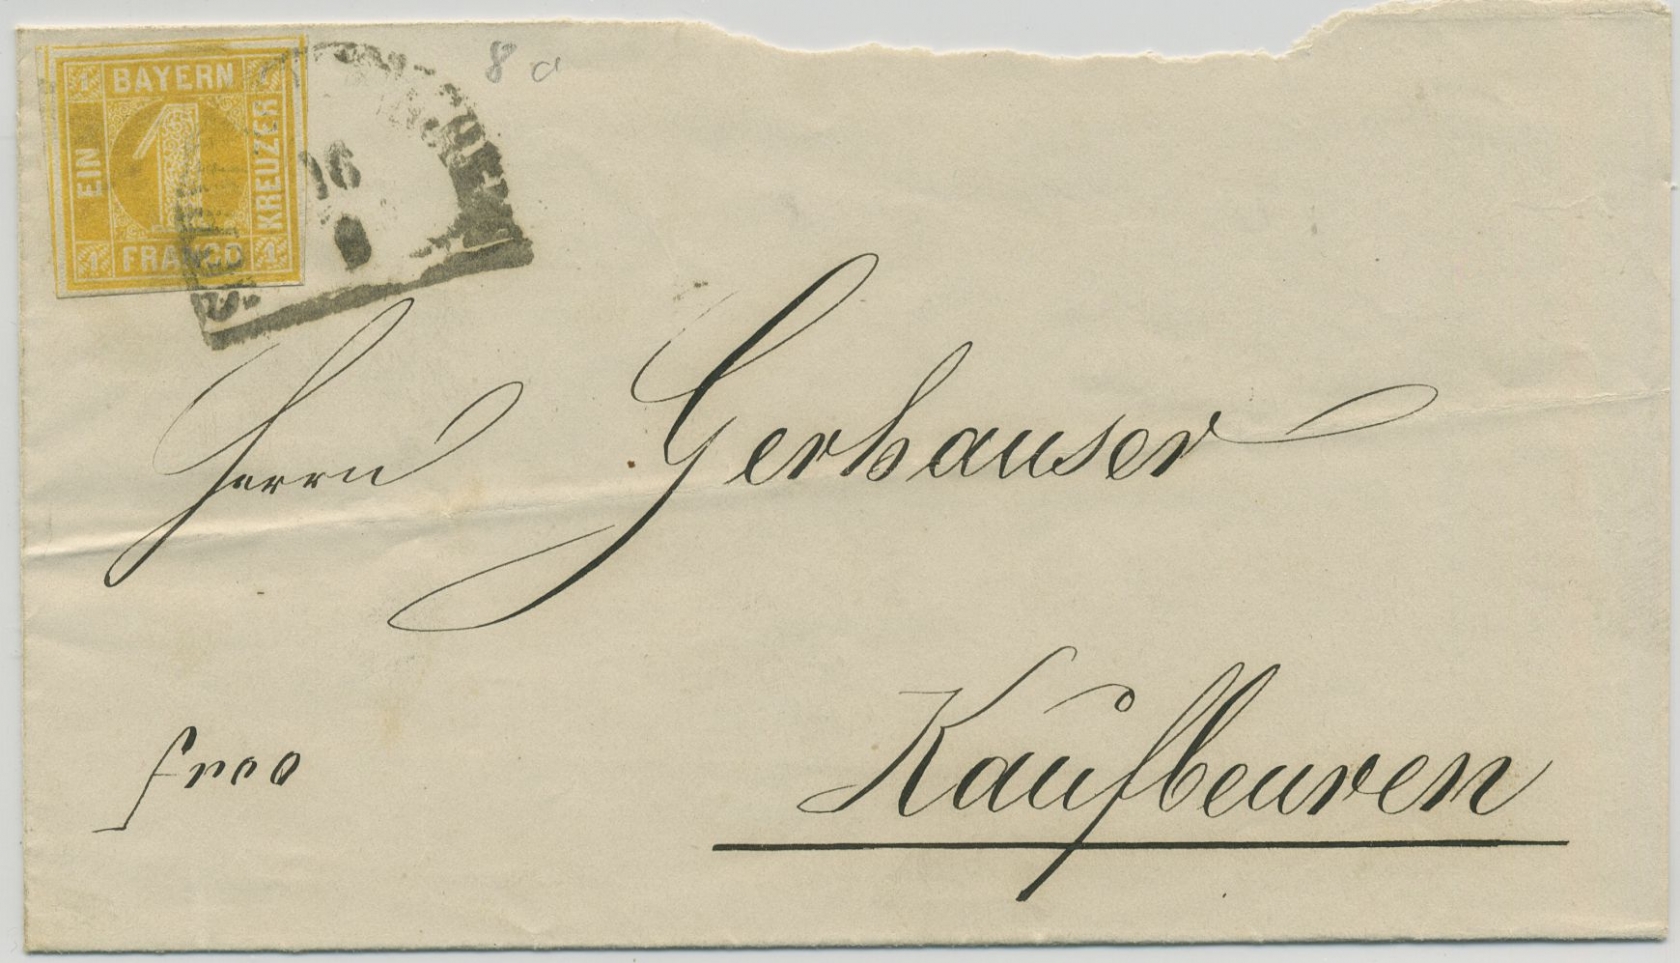 8 a
1 BAYERN 1
EIN 1 KREUZER
1 FRANCO 1
16
9
Herrn Gerhauser
Kaufbeuren
frco